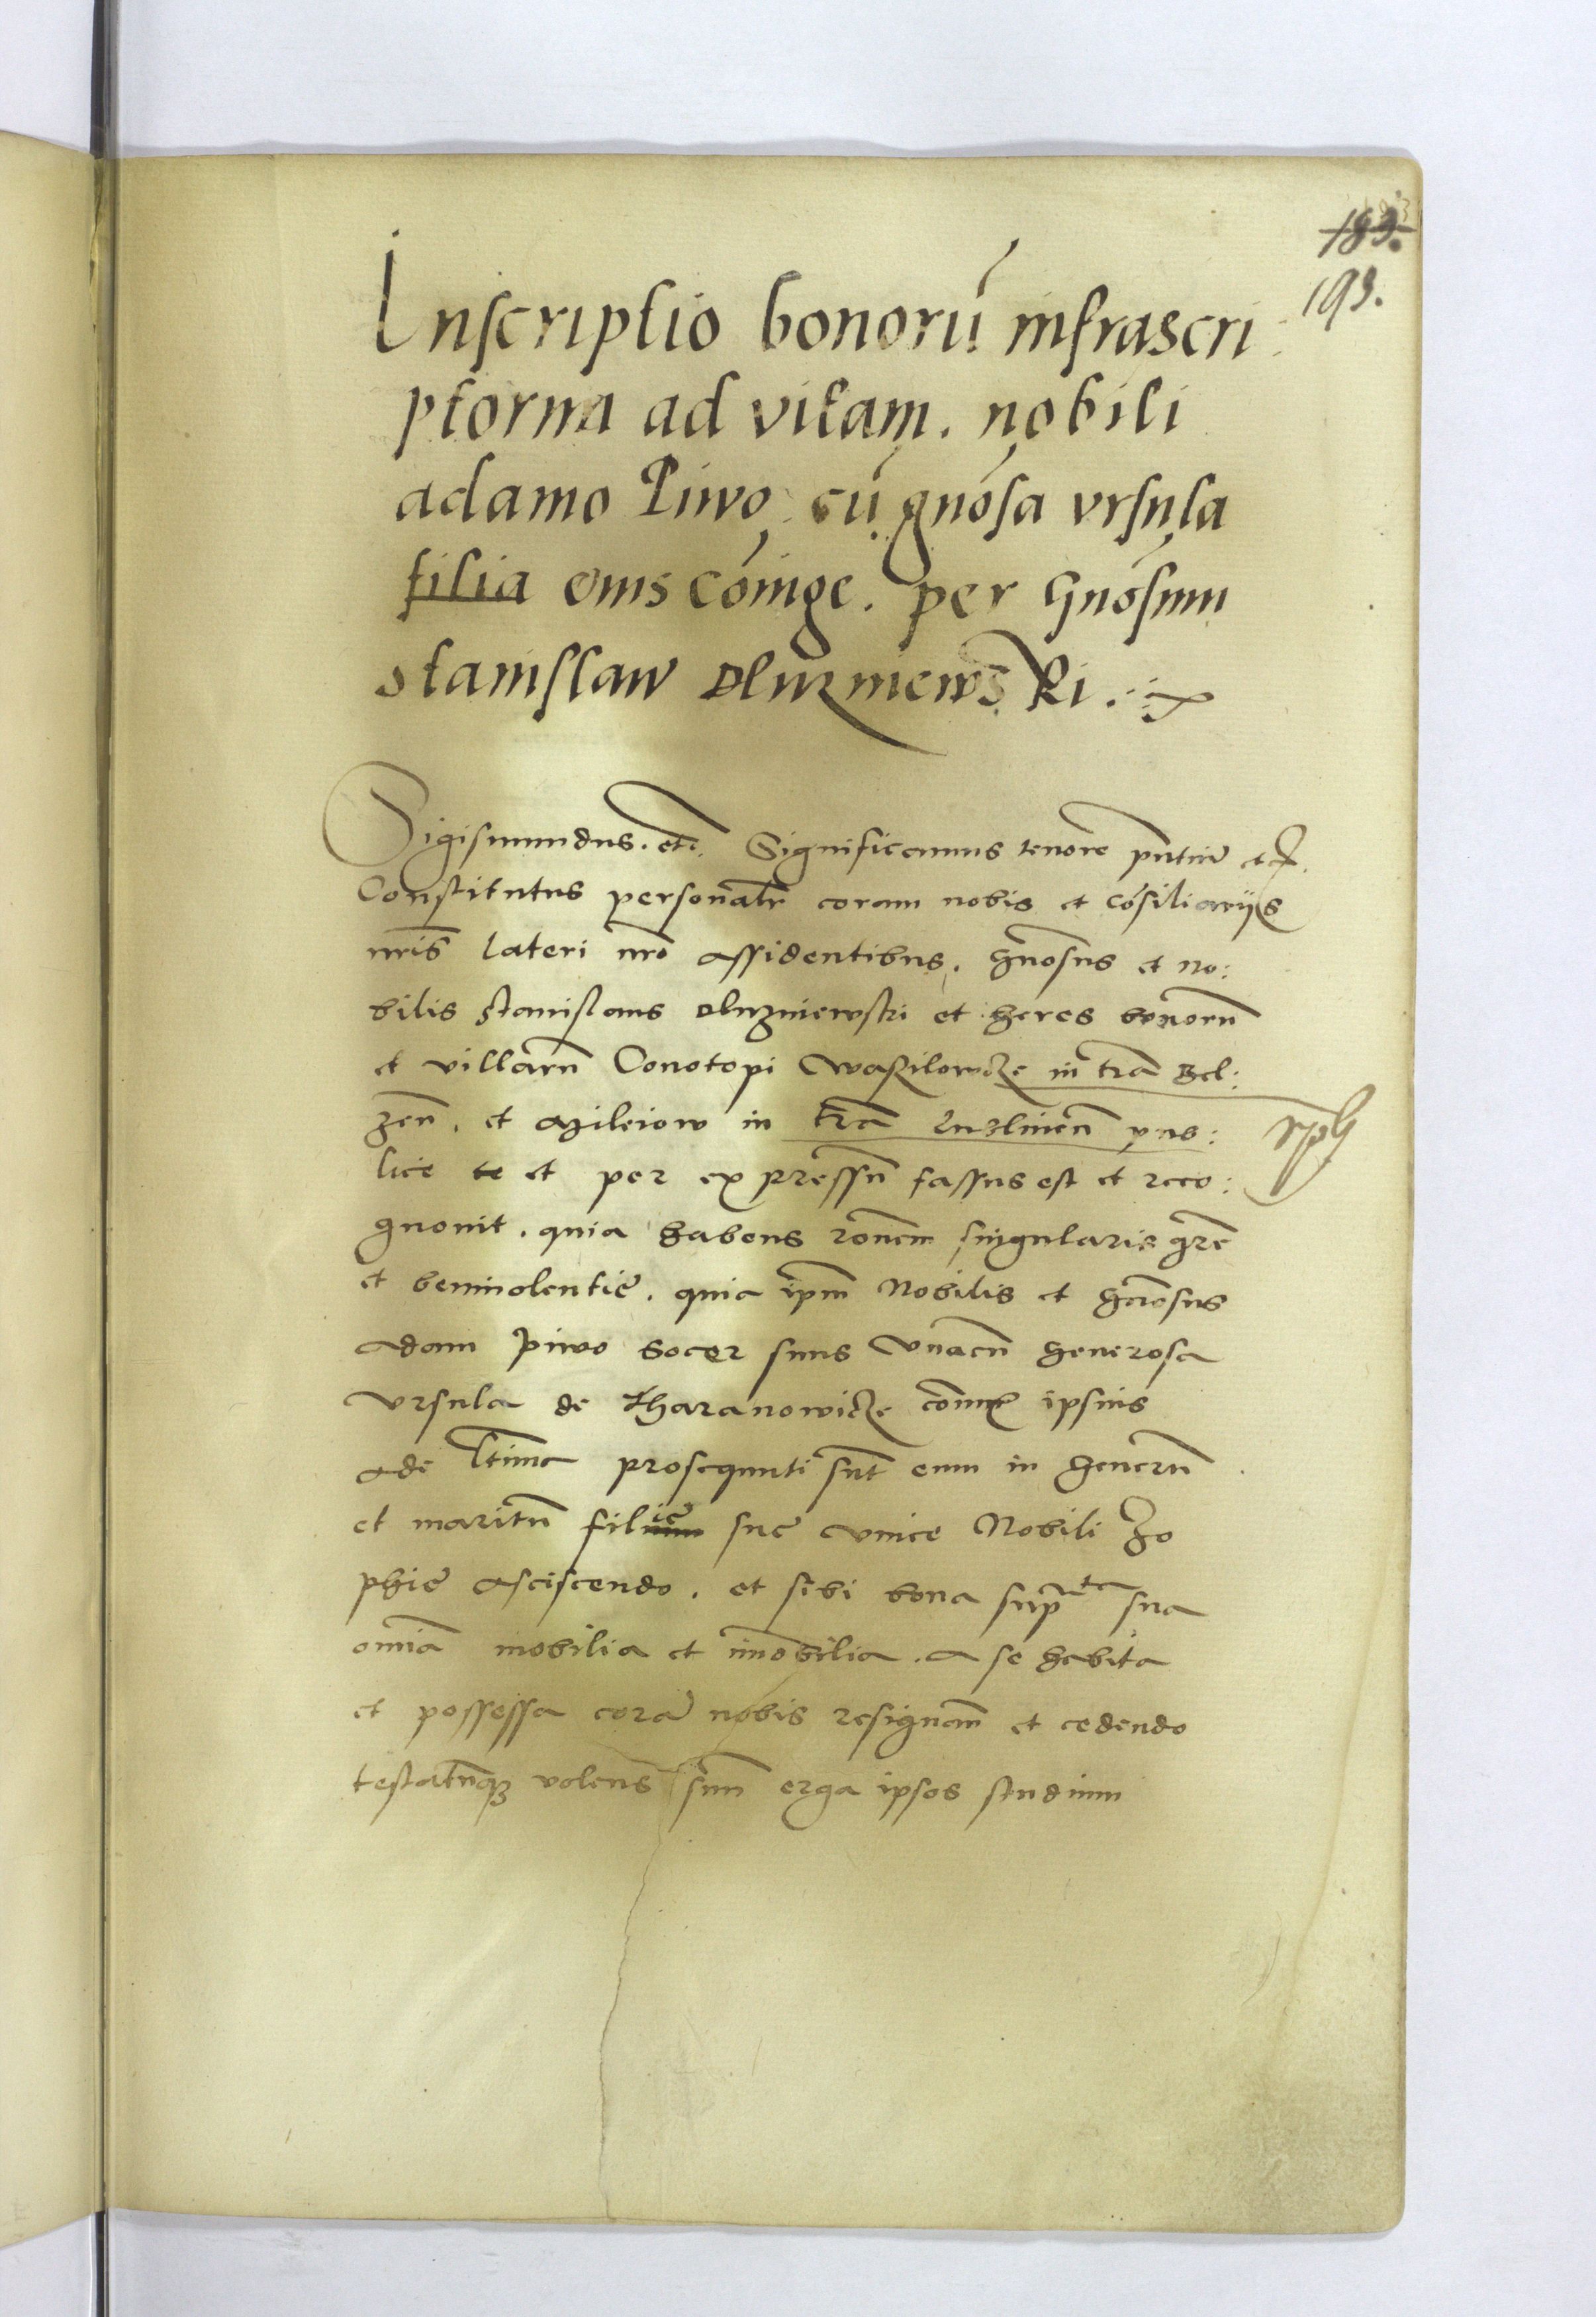 183.
193.
Inscriptio bonorú infrascri
ptorum ad vitam. nobili
adamo Piwo cú gnósa vrsula
filia eius cóiuge. per Gnósum
stanislaw Dluzniewski.
Sigismundus. etc. Significamus tenore pñtiũ etc.
Constitutus personalr̃ coram nobis et cósiliarijs
nr̃is lateri nr̃o assidentibus. gñosus et no:
bilis stanislaus Dluzniewski et heres bonorũ
et villarũ Conotopi Waszilowcze in tr̃a Bel:
zeñ. et in tr̃a pub:
lice te et per expressũ fassus est et reco:
gnouit. quia habens rõnem singularis gr̃e
et beniuolentie. quia ipm̃ Nobilis et gñosus
adam Piwo socer suus vnacũ generosa
vrsula de Tharanowicze ipsius
ade prosequuti sũt eum in generũ
et maritũ filie sue vnice Nobili Zo
phie asciscendo. et sibi bona supta sua
omĩa mobilia et im̃obilia. a se habita
et possessa corã nobis resignañ et cedendo
testatũqz volens suũ erga ipsos studium